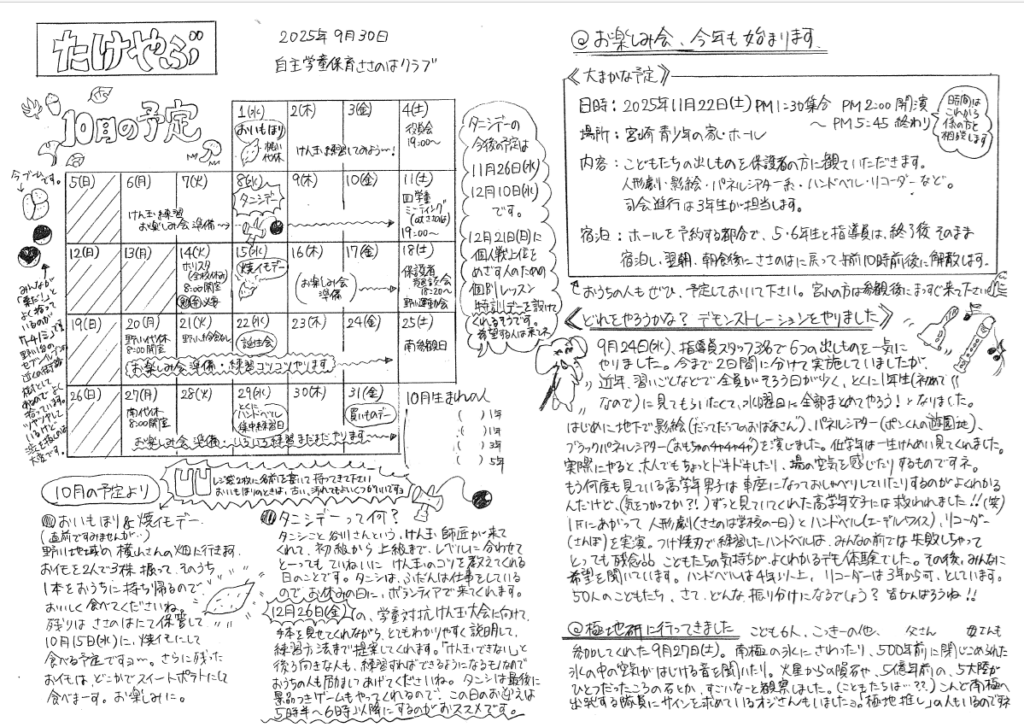 たけやぶ
2025年 9月30日
自主学童保育ささのはクラブ
10月の予定
1(水)
おいもほり
2(木)
3(金)
けん玉練習してみよう〜!
4(土)
役員会
19:00〜
5(日)
6(月)
けん玉練習
お楽しみ会準備
7(火)
8(水)
タニシデー
9(木)
10(金)
11(土)
四学童
ミーティング
19:00〜
12(日)
13(月)
14(火)
8:00開室
15(水)
焼イモデー
16(木)
(お楽しみ会
準備)
17(金)
18(土)
保護者
懇談会
野川運動会
19(日)
20(月)
野川代休
8:00開室
21(火)
22(水)
誕生会
23(木)
24(金)
25(土)
南参観日
お楽しみ会準備・練習コツコツやります
26(日)
27(月)
南代休
8:00開室
28(火)
29(水)
とくに
ハンドベル
集中練習日
30(木)
31(金)
買いものデー
タニシデーの
今後の予定は
11月26日(水)
12月10日(水)
です。
12月21日(日)に
個人戦上位を
めざす人のための
個別レッスン
特訓デーを設けて
くれるそうです。
10月生まれの人
( )1年
( )1年
( )3年
( )5年
10月の予定より
レジ袋2枚に名前を書いて持ってきて下さい
おいもほりのときは、古い、汚れてもよいくつがいいです。
おいもほり&焼イモデー
(直前ですみませんが…)
野川地域の横山さんの畑に行き
お芋を2人で3株掘って、そのうち
1本をおうちに持ち帰るので
おいしく食べてくださいね。
残りはささのはたで保管して
10月15日(水)に、焼イモにして
食べる予定ですョ〜。さらに残った
おイモは、どこかでスイートポテトにして
食べま〜す。お楽しみに。
タニシデーって何?
タニシこと谷川さんという、けん玉師匠が来て
くれて、初級から上級まで、レベルに合わせて
と〜ってもていねいにけん玉のコツを教えてくれる
日のことです。タニシは、ふだんは仕事をしている
ので、お休みの日に、ボランティアで来てくれます。
12月26日(金)の、学童対抗けん玉大会に向けて、
手本を見せてくれながら、とてもわかりやすく説明して、
練習方法まで提案してくれます。「けん玉できないし」と
後ろ向きな人も、練習すればできるようになるもんなので
おうちの人も励ましてあげてくださいね。タニシは最後に
景品つきゲームもやってくれるので、この日のお迎えは
5時半〜6時以降にするのがおススメです。
@お楽しみ会、今年も始まります。
《大まかな予定》
日時:2025年11月22日(土)PM1:30集合 PM2:00開演
〜PM5:45終わり
時間は
これから
他の方と
相談します
場所:宮崎青少年の家・ホール
内容:こどもたちの出しものを保護者の方に観ていただきます。
人形劇・影絵・パネルシアター系・ハンドベル・リコーダーなど。
司会進行は3年生が担当します。
宿泊:ホールを予約する都合で、5・6年生と指導員は、終了後そのまま
宿泊し、翌朝、朝食後にささのはに戻って午前10時前後に解散します。
おうちの人もぜひ、予定しておいて下さい。
《どれをやろうかな? デモンストレーションをやりました》
9月24日(水)、指導員スタッフ3名で6つの出しものを一気に
やりました。今まで2日間に分けて実施していましたが、
近年、習いごとなどで全員がそろう日が少く、とくに1年生(初めて
なので)に見てもらいたくて、水曜日に全部まとめてやろう!となりました。
はじめに地下で影絵(だってだってのおばあさん)、パネルシアター(ポンくんの遊園地)、
ブラックパネルシアター(おもちゃのチャチャチャ)を演じました。低学年は一生けんめい見てくれました。
実際にやると大人でもちょっとドキドキしたり、場の空気を感じたりするものですネ。
もう何度も見ている高学年男子は車座になっておしゃべりしていたりするのがよくわかる
んだけど、(気をつかってか?!)ずっと見ていてくれた高学年女子には救われました!!(笑)
1Fにあがって人形劇(ささのは学校の一日)とハンドベル(エーデルワイス)、リコーダー
(さんぽ)を実演。つけ焼刃で練習したハンドベルは、みんなの前では失敗しちゃって
とっても残念。こどもたちの気持ちがよくわかるデモ体験でした。その後、みんなに
希望を聞いています。ハンドベルは4年以上、リコーダーは3年から可、としています。
50人のこどもたち、さて、どんな振り分けになるでしょう?皆がんばろうね!!
@極地研に行ってきました
こども6人、
参加してくれた9月27日(土)。南極の氷にさわったり、500年前に閉じこめられた
氷の中の空気がはじける音を聞いたり、火星からの隕石や、5億年前の、5大陸が
ひとつだったころの石とか、すごいなーと観察しました。(こどもたちは…??)こんど南極へ
出発する隊員にサインを求めているオジさんもいましたョ。「極地推し」の人もいるのですネ